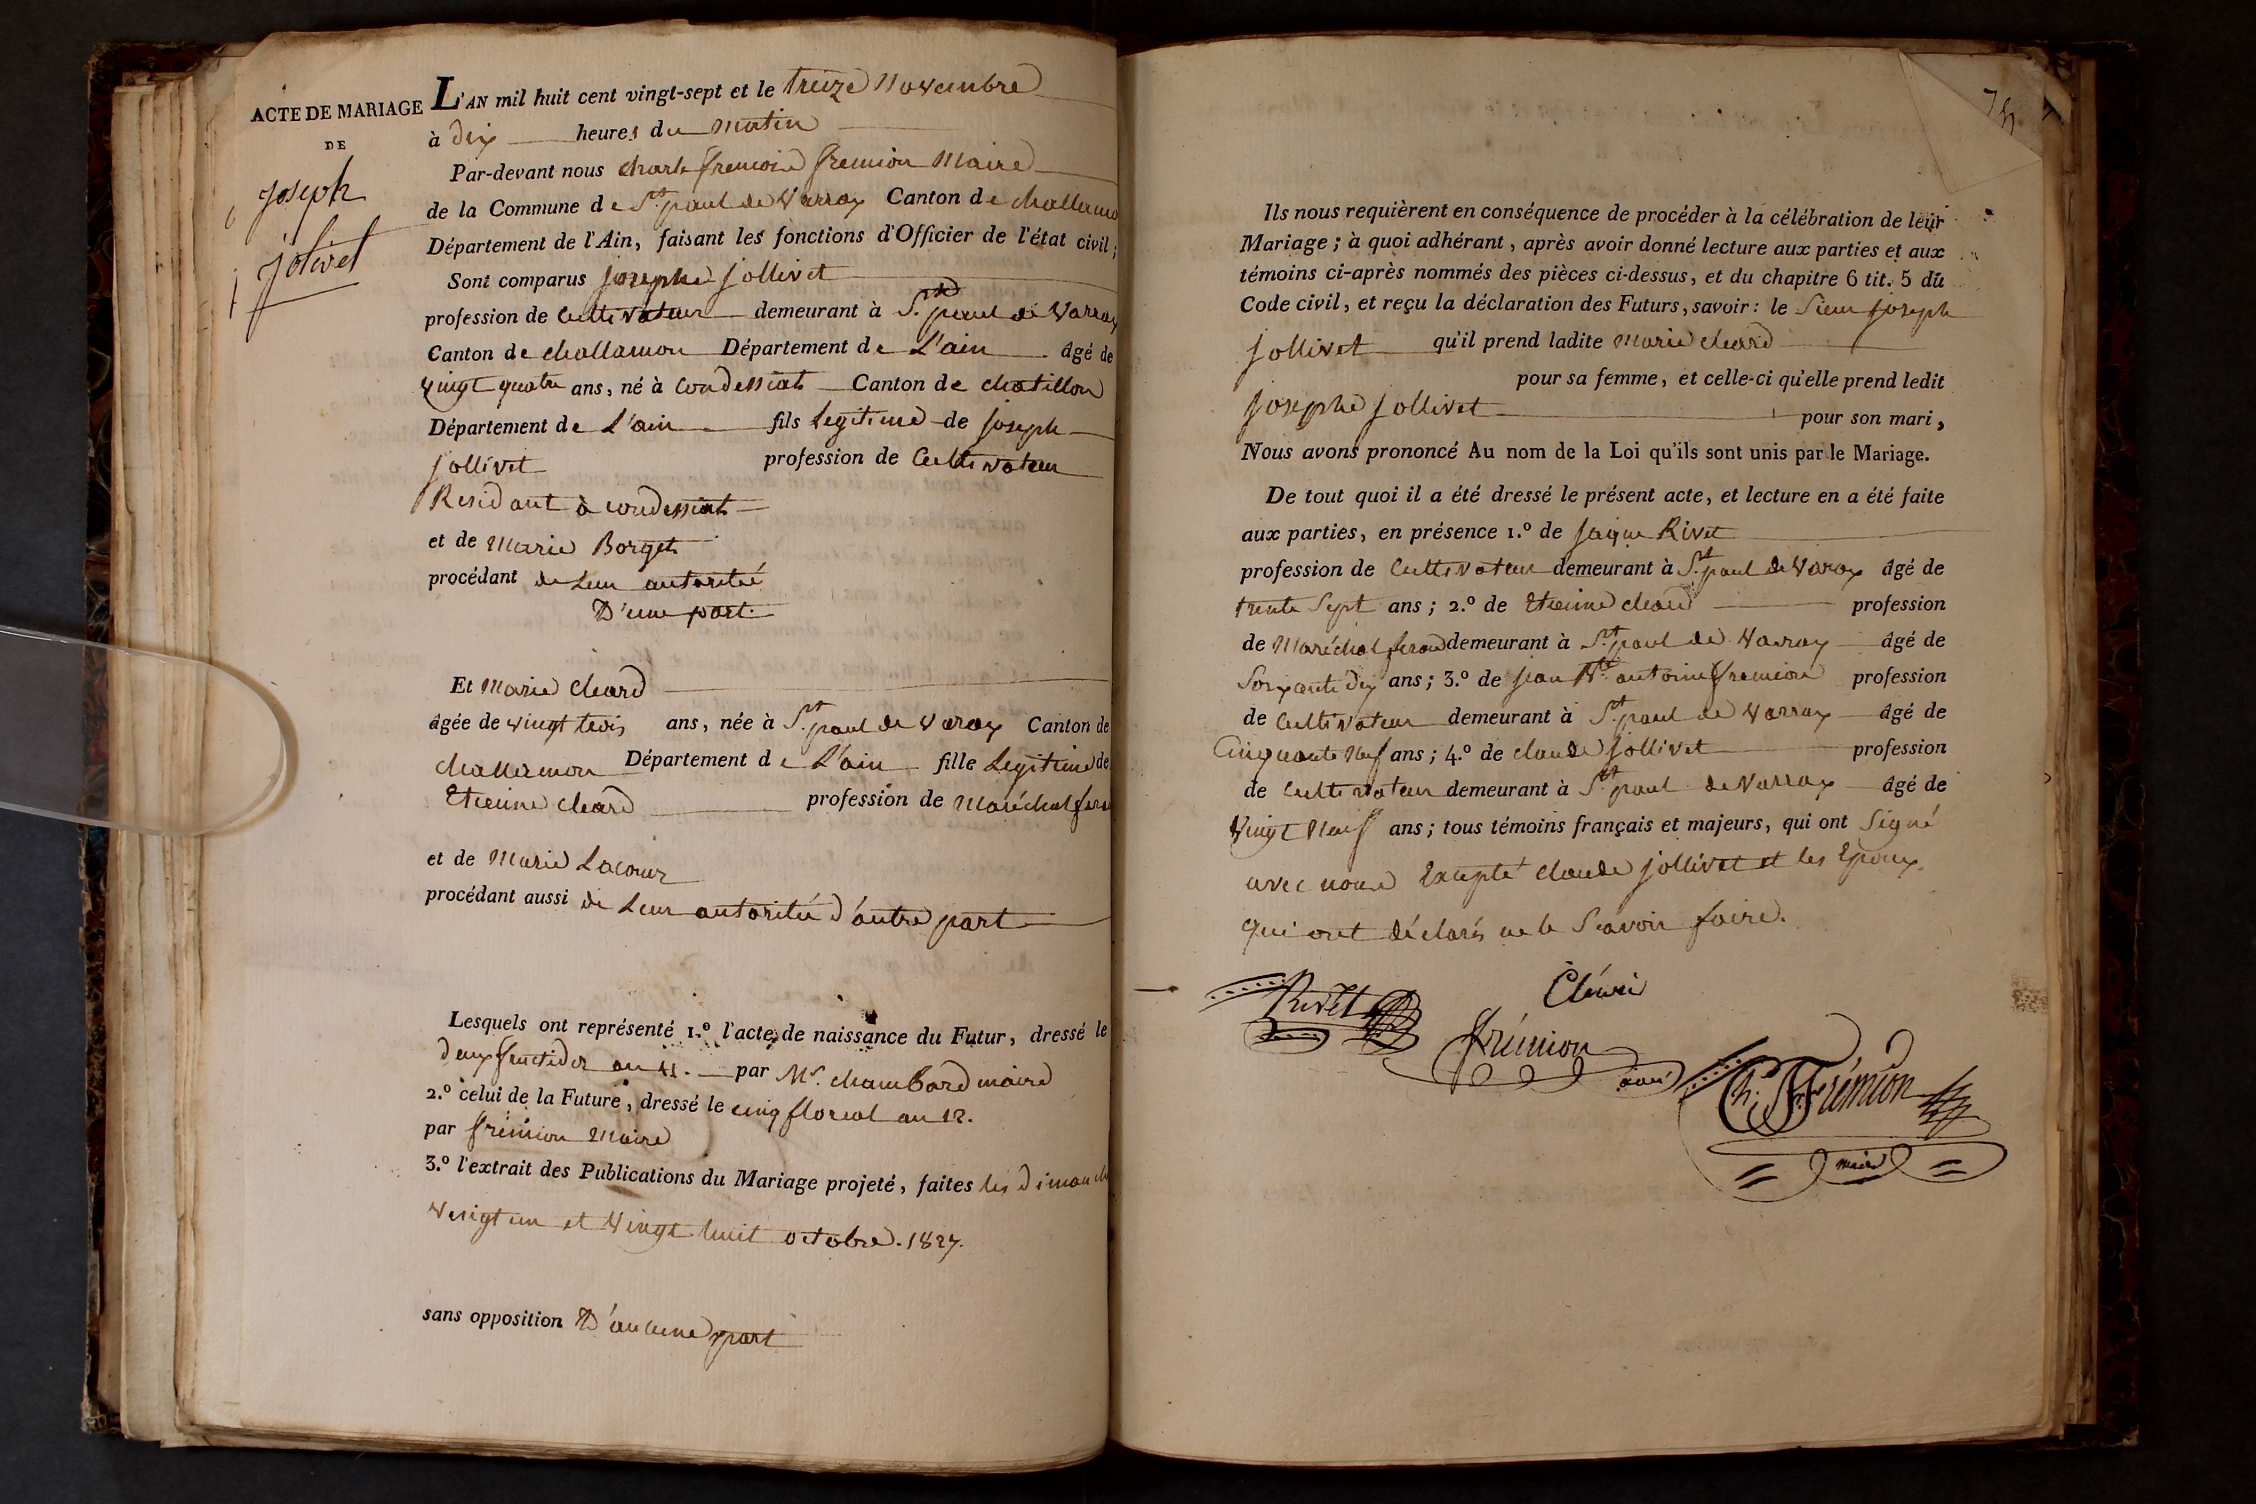 ACTE DE MARIAGE
DE
Joseph
Jolivet
L'AN mil huit cent vingt-sept et le treize Novembre
à dix heures du Matin
Par-devant nous Charle francoise fremion Maire
de la Commune de St. paul de Varrax Canton de challamon
Département de l'Ain, faisant les fonctions d'Officier de l'état civil;
Sont comparus Josephe Jollivet
profession de Cultivateur demeurant à St. paul de Varrax
Canton de challamon Département de L'ain âgé de
vingt quatre ans, né à Condessiat Canton de chatillon
Département de L'ain fils Legitime de Joseph
Jollivet profession de Cultivateur
Residant à Condessiat
et de Marie Borget
procédant de Leur autoritée
D'une part.
Et Marie Cleard
âgée de vingt trois ans, née à St. paul de Varax Canton de
challamon Département de L'ain fille Legitime de
Etienne Cleard profession de Maréchal fera
et de Marie Lacour
procédant aussi de Leur autoritée d'autre part
Lesquels ont représenté 1.º l'acte de naissance du Futur, dressé le
deux fructidor an 11. par Mr. Chambard maire
2.º celui de la Future, dressé le cinq floreal an 12.
par frémion Maire
3.º l'extrait des Publications du Mariage projeté, faites les dimanche
vingt un et vingt huit octobre. 1827.
sans opposition D'aucune part
Ils nous requièrent en conséquence de procéder à la célébration de leur
Mariage; à quoi adhérant, après avoir donné lecture aux parties et aux
témoins ci-après nommés des pièces ci-dessus, et du chapitre 6 tit. 5 du
Code civil, et reçu la déclaration des Futurs, savoir: le Sieur Joseph
Jollivet qu'il prend ladite Marie Cleard
pour sa femme, et celle-ci qu'elle prend ledit
Josephe Jollivet pour son mari,
Nous avons prononcé Au nom de la Loi qu'ils sont unis par le Mariage.
De tout quoi il a été dressé le présent acte, et lecture en a été faite
aux parties, en présence 1.º de Jaque Rivet
profession de Cultivateur demeurant à St. paul de Varax âgé de
trente Sept ans; 2.º de Etienne Cleard profession
de Maréchal feran demeurant à St. paul de Varrax âgé de
Soixante dix ans; 3.º de Jean Bte. antoine fremion profession
de Cultivateur demeurant à St. paul de Varrax âgé de
Cinquante Neuf ans; 4.º de claude Jollivet profession
de Cultivateur demeurant à St. paul de Varrax âgé de
Vingt Neuf ans; tous témoins français et majeurs, qui ont Signé
avec nous Excepté claude Jollivet et les Epoux
qui ont déclarés ne le Scavoir faire.
Rivet
frémion
Ch. F. Frémion
maire